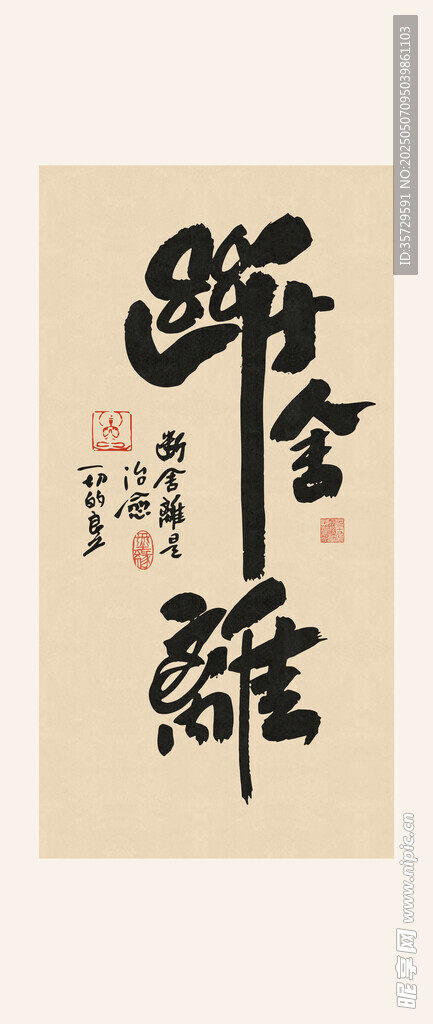 斷舍離
斷舍離是
治愈
一切的良
ID:35729591 NO:20250507095039861103
昵享网 www.nipic.cn